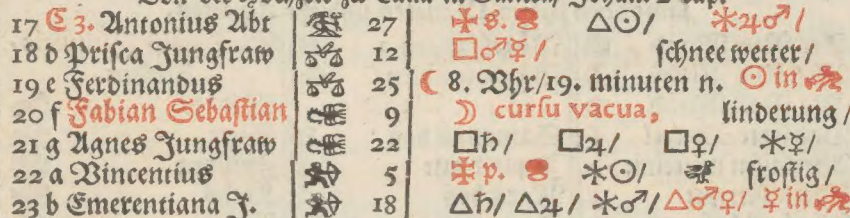 17 C 3. Antonius Abt ♍ 27 ✠ s. △☉/ ✶♃♂/
18 d Prisca Jungfraw ♎ 12 □♂☿/ schnee wetter/
19 e Ferdinandus ♎ 25 ☾ 8. Vhr/19. minuten n. ☉ in ♒
20 f Fabian Sebastian 9 ☽ cursu vacua, linderung/
21 g Agnes Jungfraw 22 □♄/ □♃/ □♀/ ✶☿/
22 a Vincentius ♐ 5 ✠ p. ✶☉/ frostig/
23 b Emerentiana J. ♐ 18 △♄/ △♃/ ✶♂/ △♂♀/ ☿ in ♒